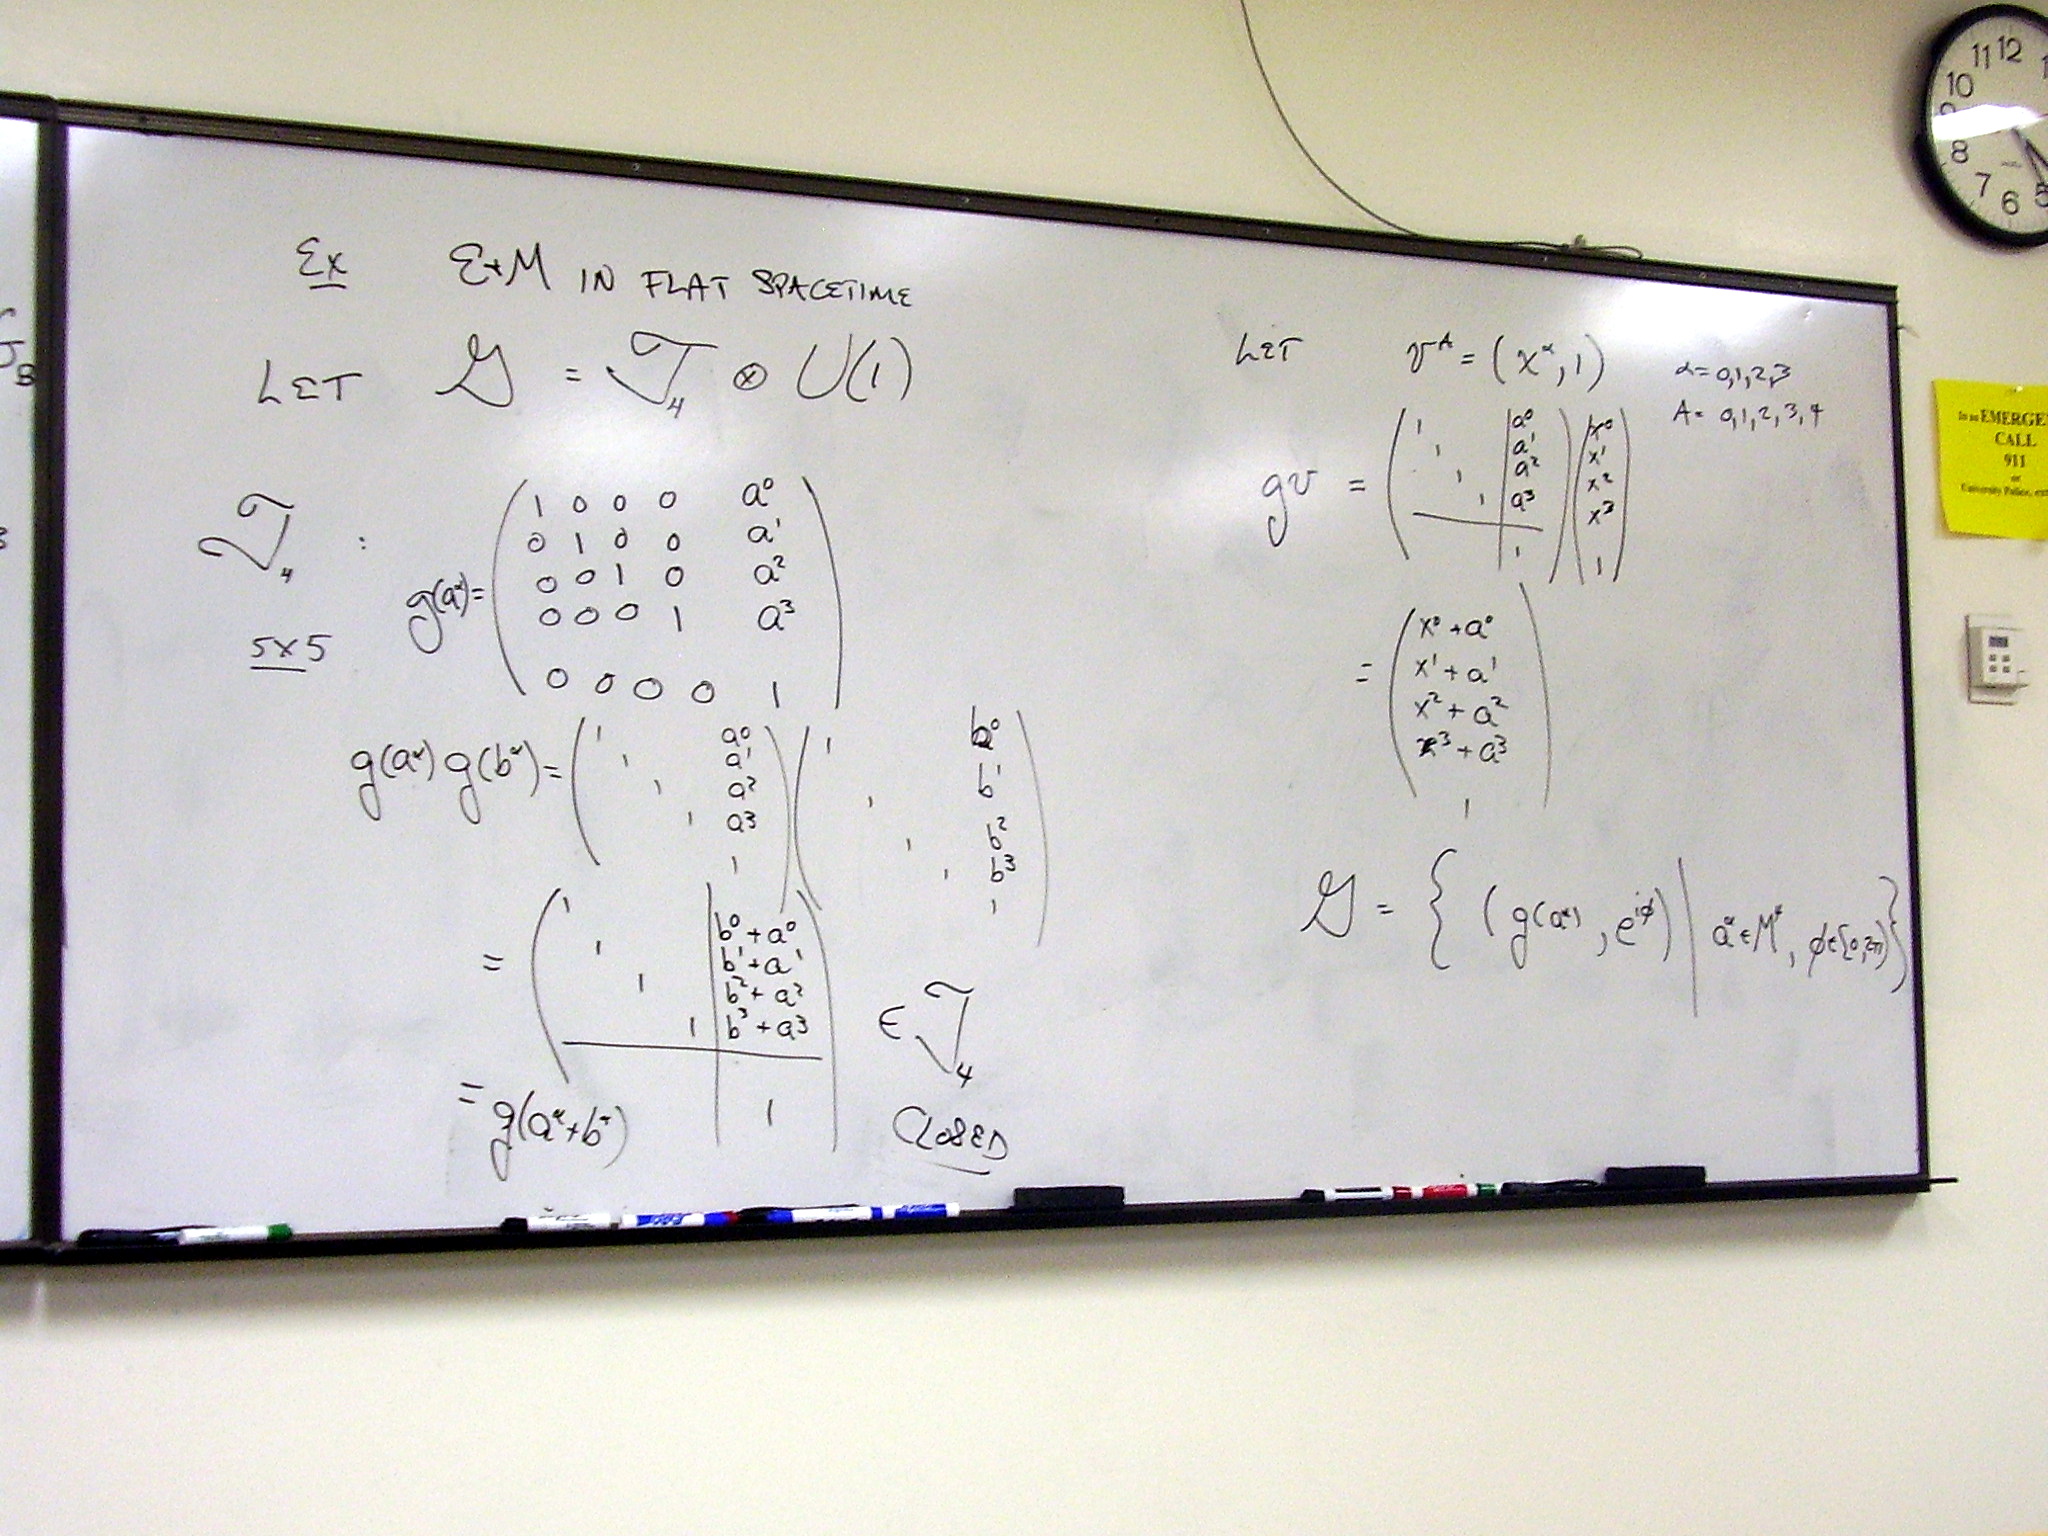 Ex E+M IN FLAT SPACETIME
LET 𝒢 = 𝒯₄ ⊗ U(1)
𝒯₄ :
5x5
g(aᵅ) =
1 0 0 0 a⁰
0 1 0 0 a¹
0 0 1 0 a²
0 0 0 1 a³
0 0 0 0 1
g(aᵅ) g(bᵅ) =
1 a⁰
1 a¹
1 a²
1 a³
1
1 b⁰
1 b¹
1 b²
1 b³
1
=
1 b⁰ + a⁰
1 b¹ + a¹
1 b² + a²
1 b³ + a³
1
∈ 𝒯₄
CLOSED
= g(aᵅ + bᵅ)
LET vᴬ = (xᵅ, 1)
α = 0,1,2,3
A = 0,1,2,3,4
gv =
1 a⁰
1 a¹
1 a²
1 a³
1
x⁰
x¹
x²
x³
1
=
x⁰ + a⁰
x¹ + a¹
x² + a²
x³ + a³
1
𝒢 = { (g(aᵅ), e^{iφ}) | aᵅ ∈ M⁴, φ ∈ [0,2π) }
10 11 12
8
7 6 5
EMERGE
CALL
911
or
University Police, ext